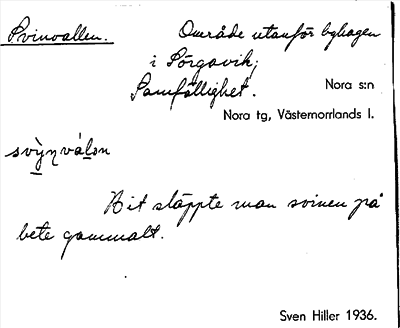 Svinvallen. Område utanför byhagen
i Sörgavik;
Samfällighet. Nora s:n
Nora tg, Västernorrlands l.
svỳnválən
Hit släppte man svinen på
bete gammalt.
Sven Hiller 1936.